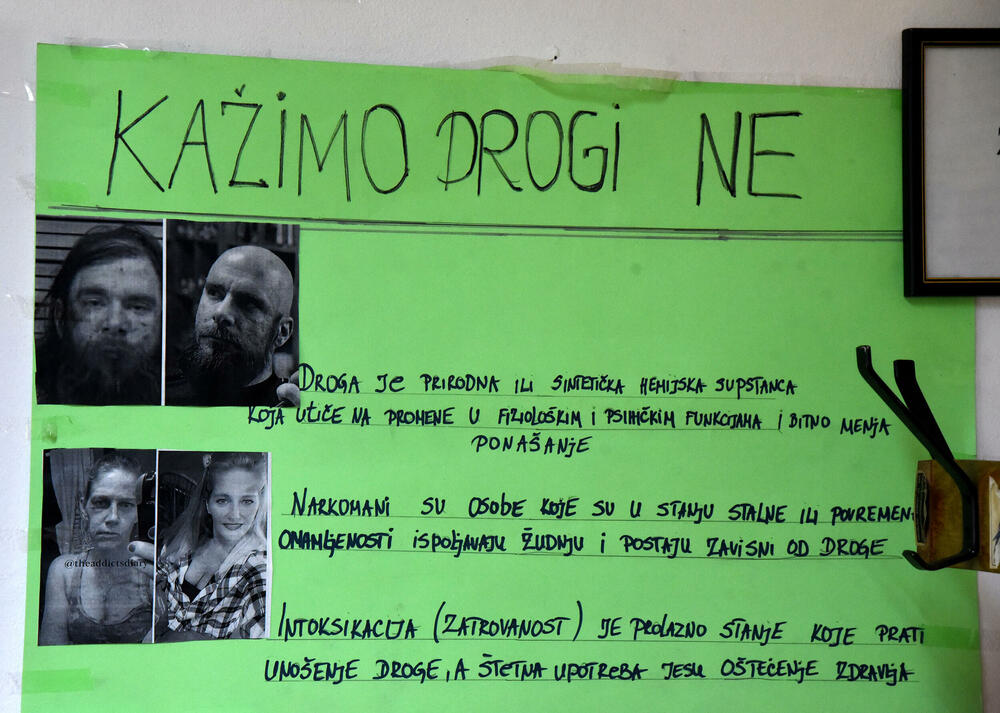 KAŽIMO DROGI NE
DROGA JE PRIRODNA ILI SINTETIČKA HEMIJSKA SUPSTANCA
KOJA UTIČE NA PROMENE U FIZIOLOŠKIM I PSIHIČKIM FUNKCIJAMA I BITNO MENJA
PONAŠANJE
NARKOMANI SU OSOBE KOJE SU U STANJU STALNE ILI POVREMEN
OMAMLJENOSTI ISPOLJAVAJU ŽUDNJU I POSTAJU ZAVISNI OD DROGE
@theaddictsdiary
INTOKSIKACIJA (ZATROVANOST) JE PROLAZNO STANJE KOJE PRATI
UNOŠENJE DROGE, A ŠTETNA UPOTREBA JESU OŠTEĆENJE ZDRAVLJA